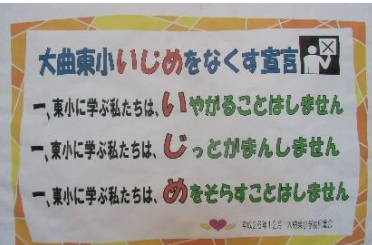 大曲東小いじめをなくす宣言
一、東小に学ぶ私たちは、いやがることはしません
一、東小に学ぶ私たちは、じっとがまんしません
一、東小に学ぶ私たちは、めをそらすことはしません